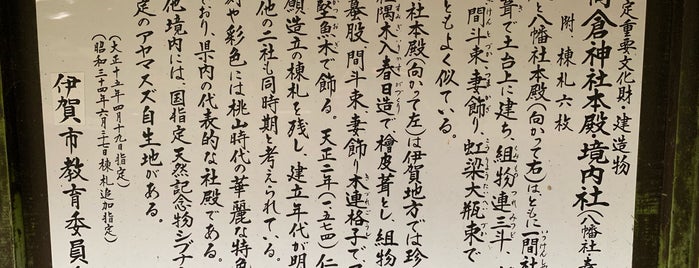 定重要文化財・建造物
高倉神社本殿境内社(八幡社
附 棟札六枚
と八幡社本殿(向かって右)は、ともに一間社
葺で土台上に建ち、組物連三斗、
間斗束、妻飾り、虹梁大瓶束で
ともよく似ている。
社本殿(向かて左)は伊賀地方では珍
隅木入春日造で、檜皮葺とし、組物
蟇股、間斗束、妻飾り木連格子で、
堅魚木で飾る。天正二年(一五七四)仁
願造立の棟札を残し、建立年代が明
他の二社も同時期と考えられている。
刻や彩色には桃山時代の華麗な特色
ており、県内の代表的な社殿である。
他境内には、国指定天然記念物シブナ
定のアヤマスズ自生地がある。
(大正十五年四月十九日指定)
(昭和三十四年六月二十七日棟札追加指定)
伊賀市教育委員